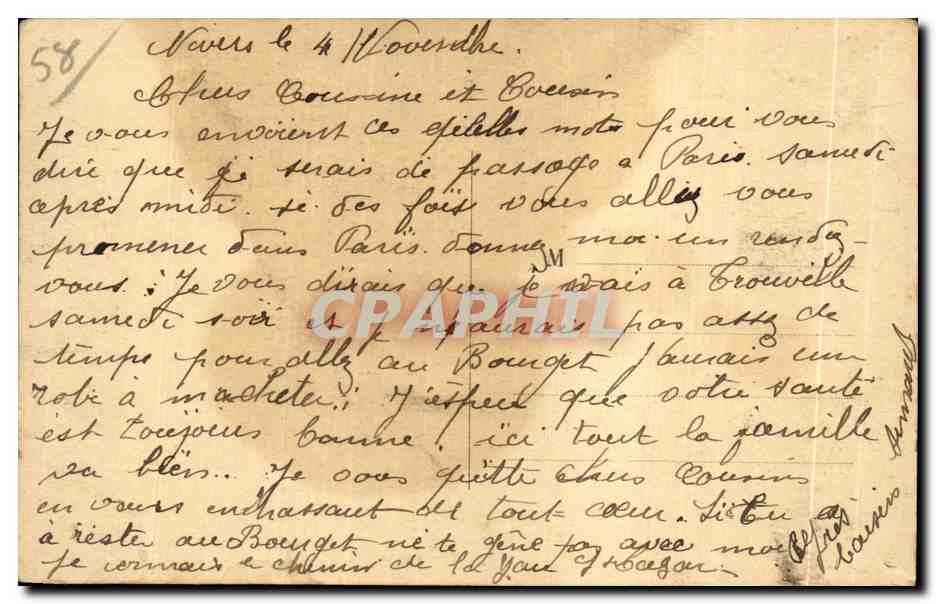 58/
Nevers le 4 Novembre.
Chers Cousine et Cousin
Je vous envoient ces qelelles mots pour vous
dire que je serais de passage a Paris. samedi
apres midi. si des fois vous allez vous
promener dans Paris. donnez moi un rendez-
vous: Je vous dirais que je vais à Trouville
samedi soir et j n'aurais pas assez de
temps pour allez au Bourget j'aurais un
robe à macheter; J'éspere que votre santé
est toujours bonne, ici tout la famille
va bien.. Je vous quitte chers Cousins
en vours embrassant de tout cœur. Si tu a
à rester au Bourget ne te gêne pas avec moi
je connais le chemin de la
baisers
CPARHIL